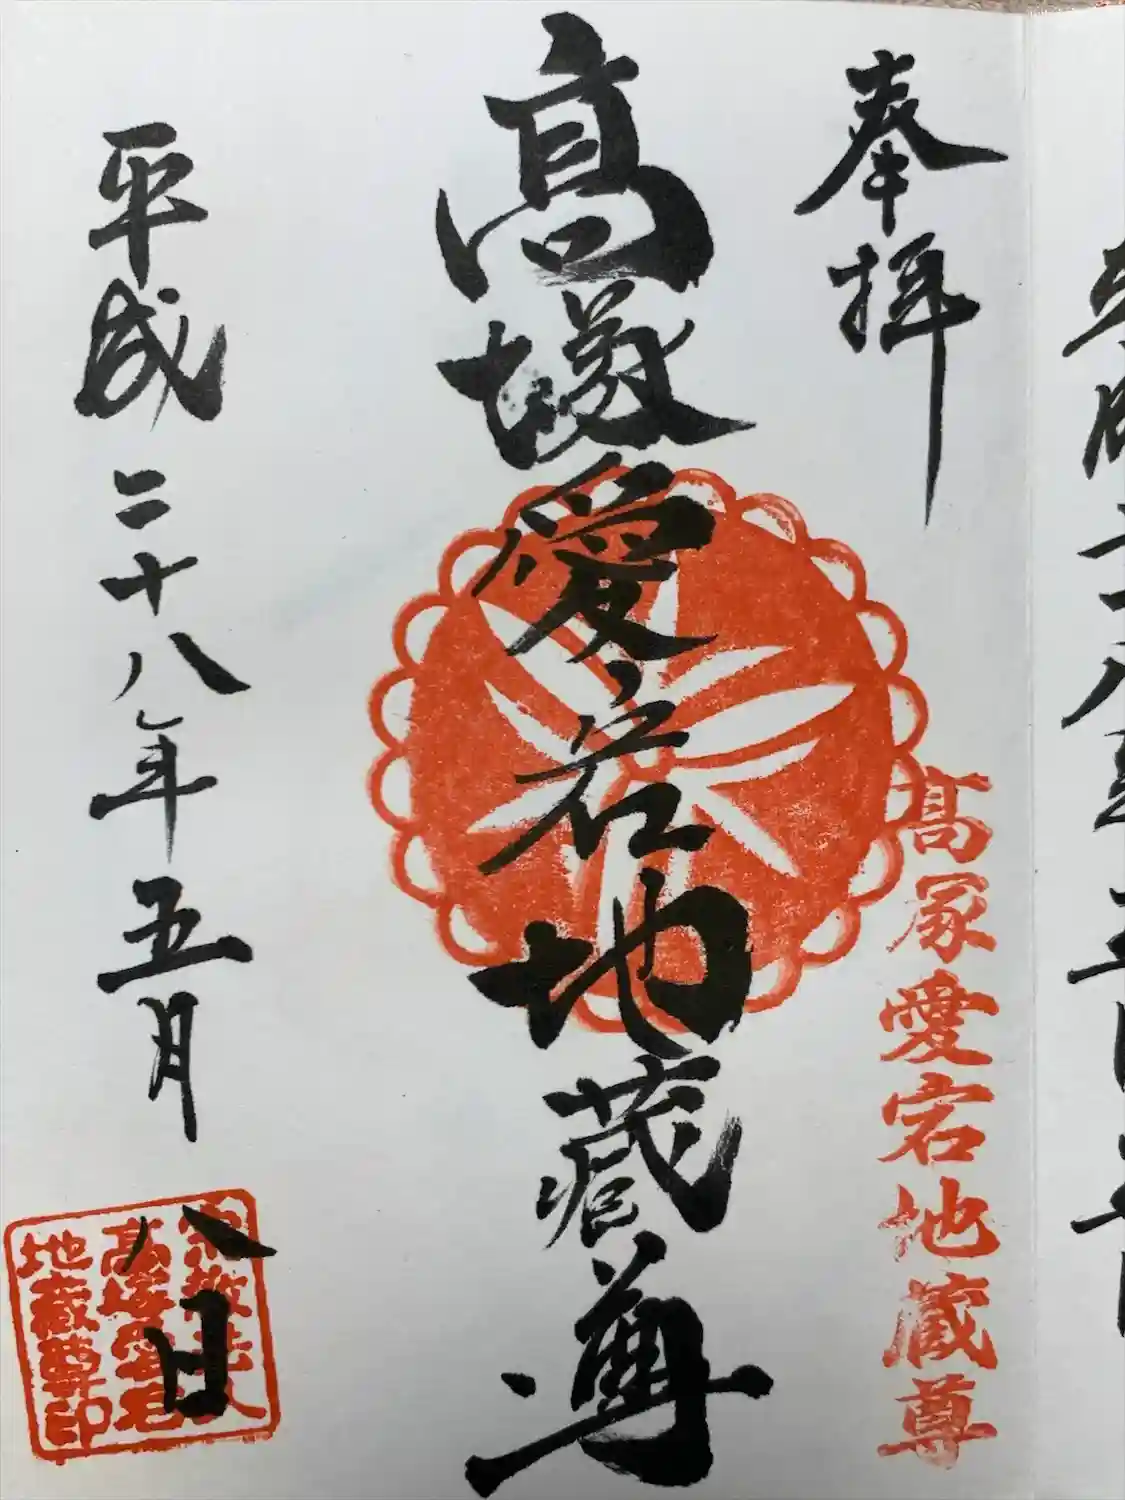 奉拝
髙塚愛宕地蔵尊
髙冢愛宕地蔵尊
平成二十八年五月八日
宗教法人
髙塚愛宕
地蔵尊印